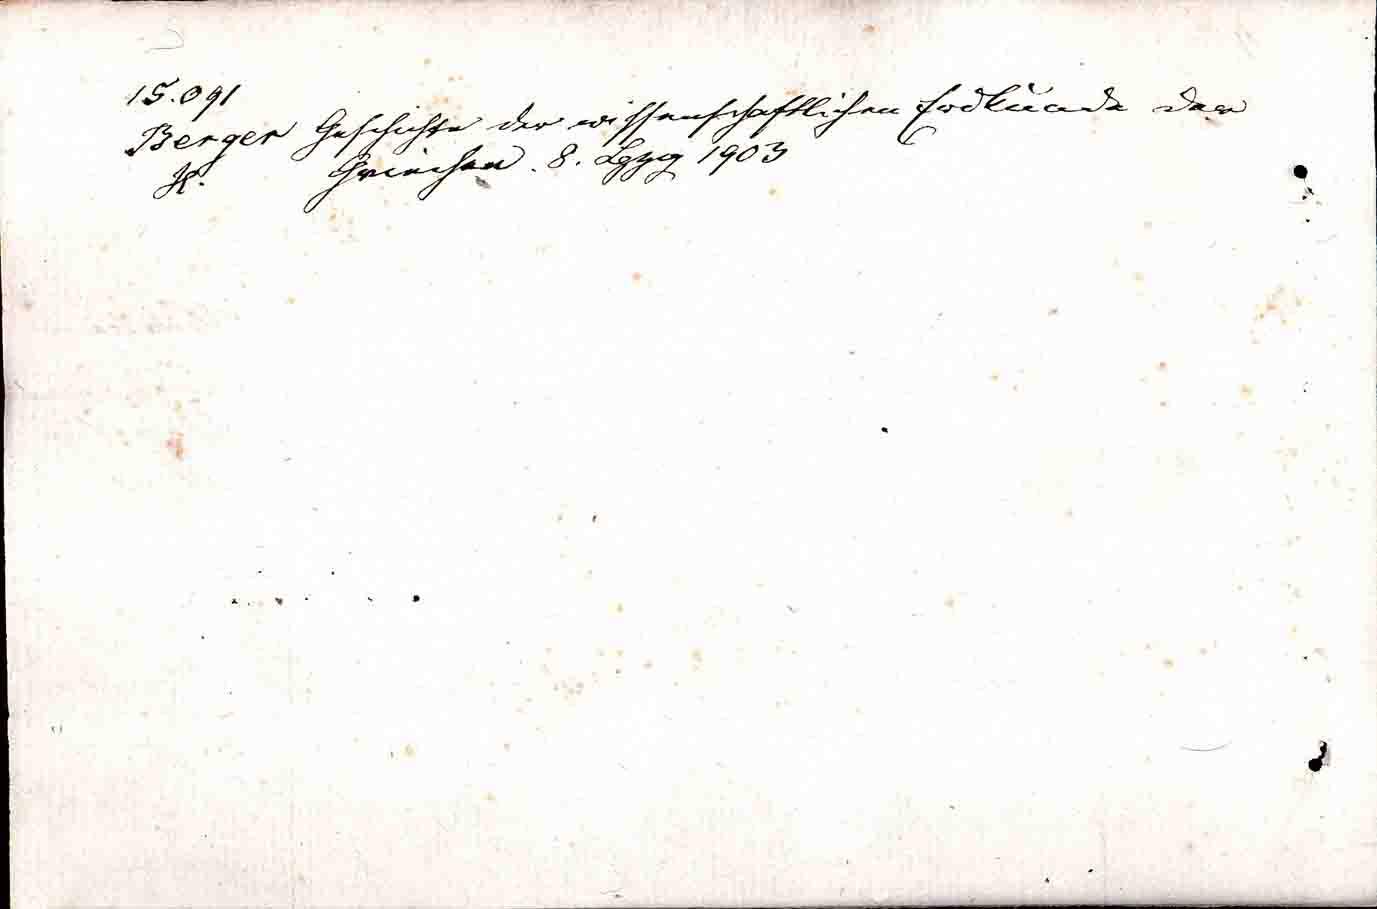 15.091
Berger Geschichte der wissenschaftlichen Erdkunde der
H. Griechen. 8. Lpzg 1903